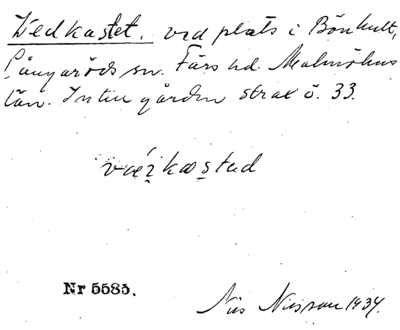 Vedkastet. ved plats i Bönhult,
Långaröds sn. Färs hd. Malmöhus
län. Intill gården strax ö. 33.
vǽʐkastəd
Nr 5583.
Nils Nilsson 1934.